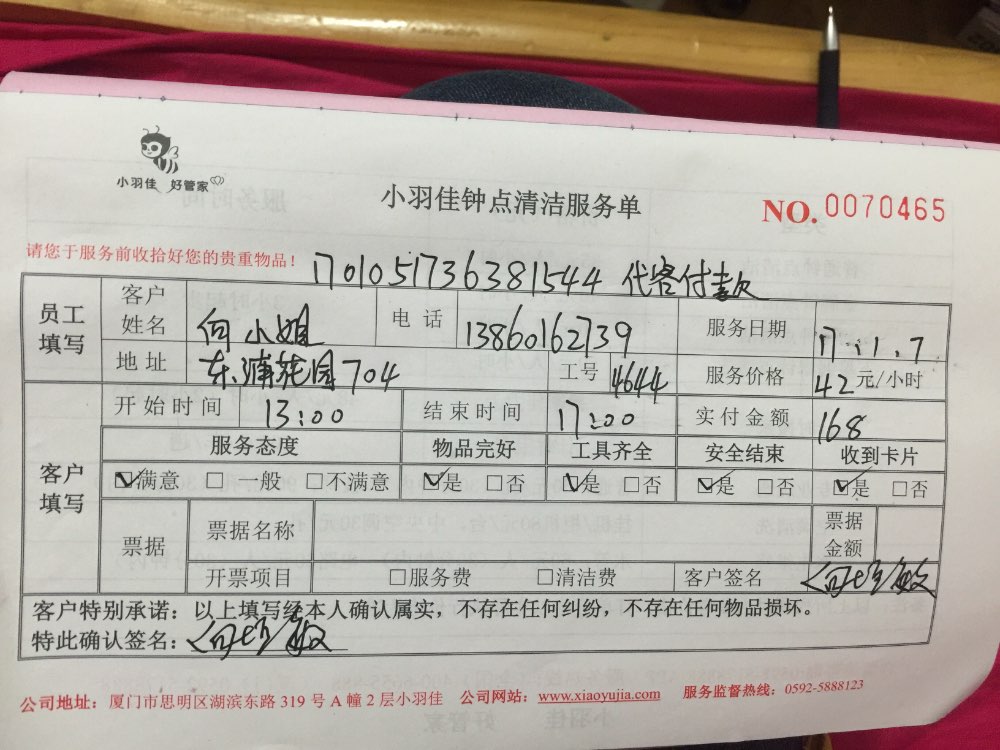 小羽佳 好管家
小羽佳钟点清洁服务单
NO. 0070465
请您于服务前收拾好您的贵重物品！
1701051736381544 代客付款
员工填写 客户姓名 向小姐 电话 13860162739 服务日期 17.1.7
地址 东浦花园704 工号 4644 服务价格 42 元/小时
客户填写 开始时间 13:00 结束时间 17:00 实付金额 168
服务态度 物品完好 工具齐全 安全结束 收到卡片
☑满意 □一般 □不满意 ☑是 □否 ☑是 □否 ☑是 □否 ☑是 □否
票据 票据名称 票据金额
开票项目 □服务费 □清洁费 客户签名
客户特别承诺：以上填写经本人确认属实，不存在任何纠纷，不存在任何物品损坏。
特此确认签名：
公司地址：厦门市思明区湖滨东路 319 号 A 幢 2 层小羽佳 公司网站：www.xiaoyujia.com 服务监督热线：0592-5888123